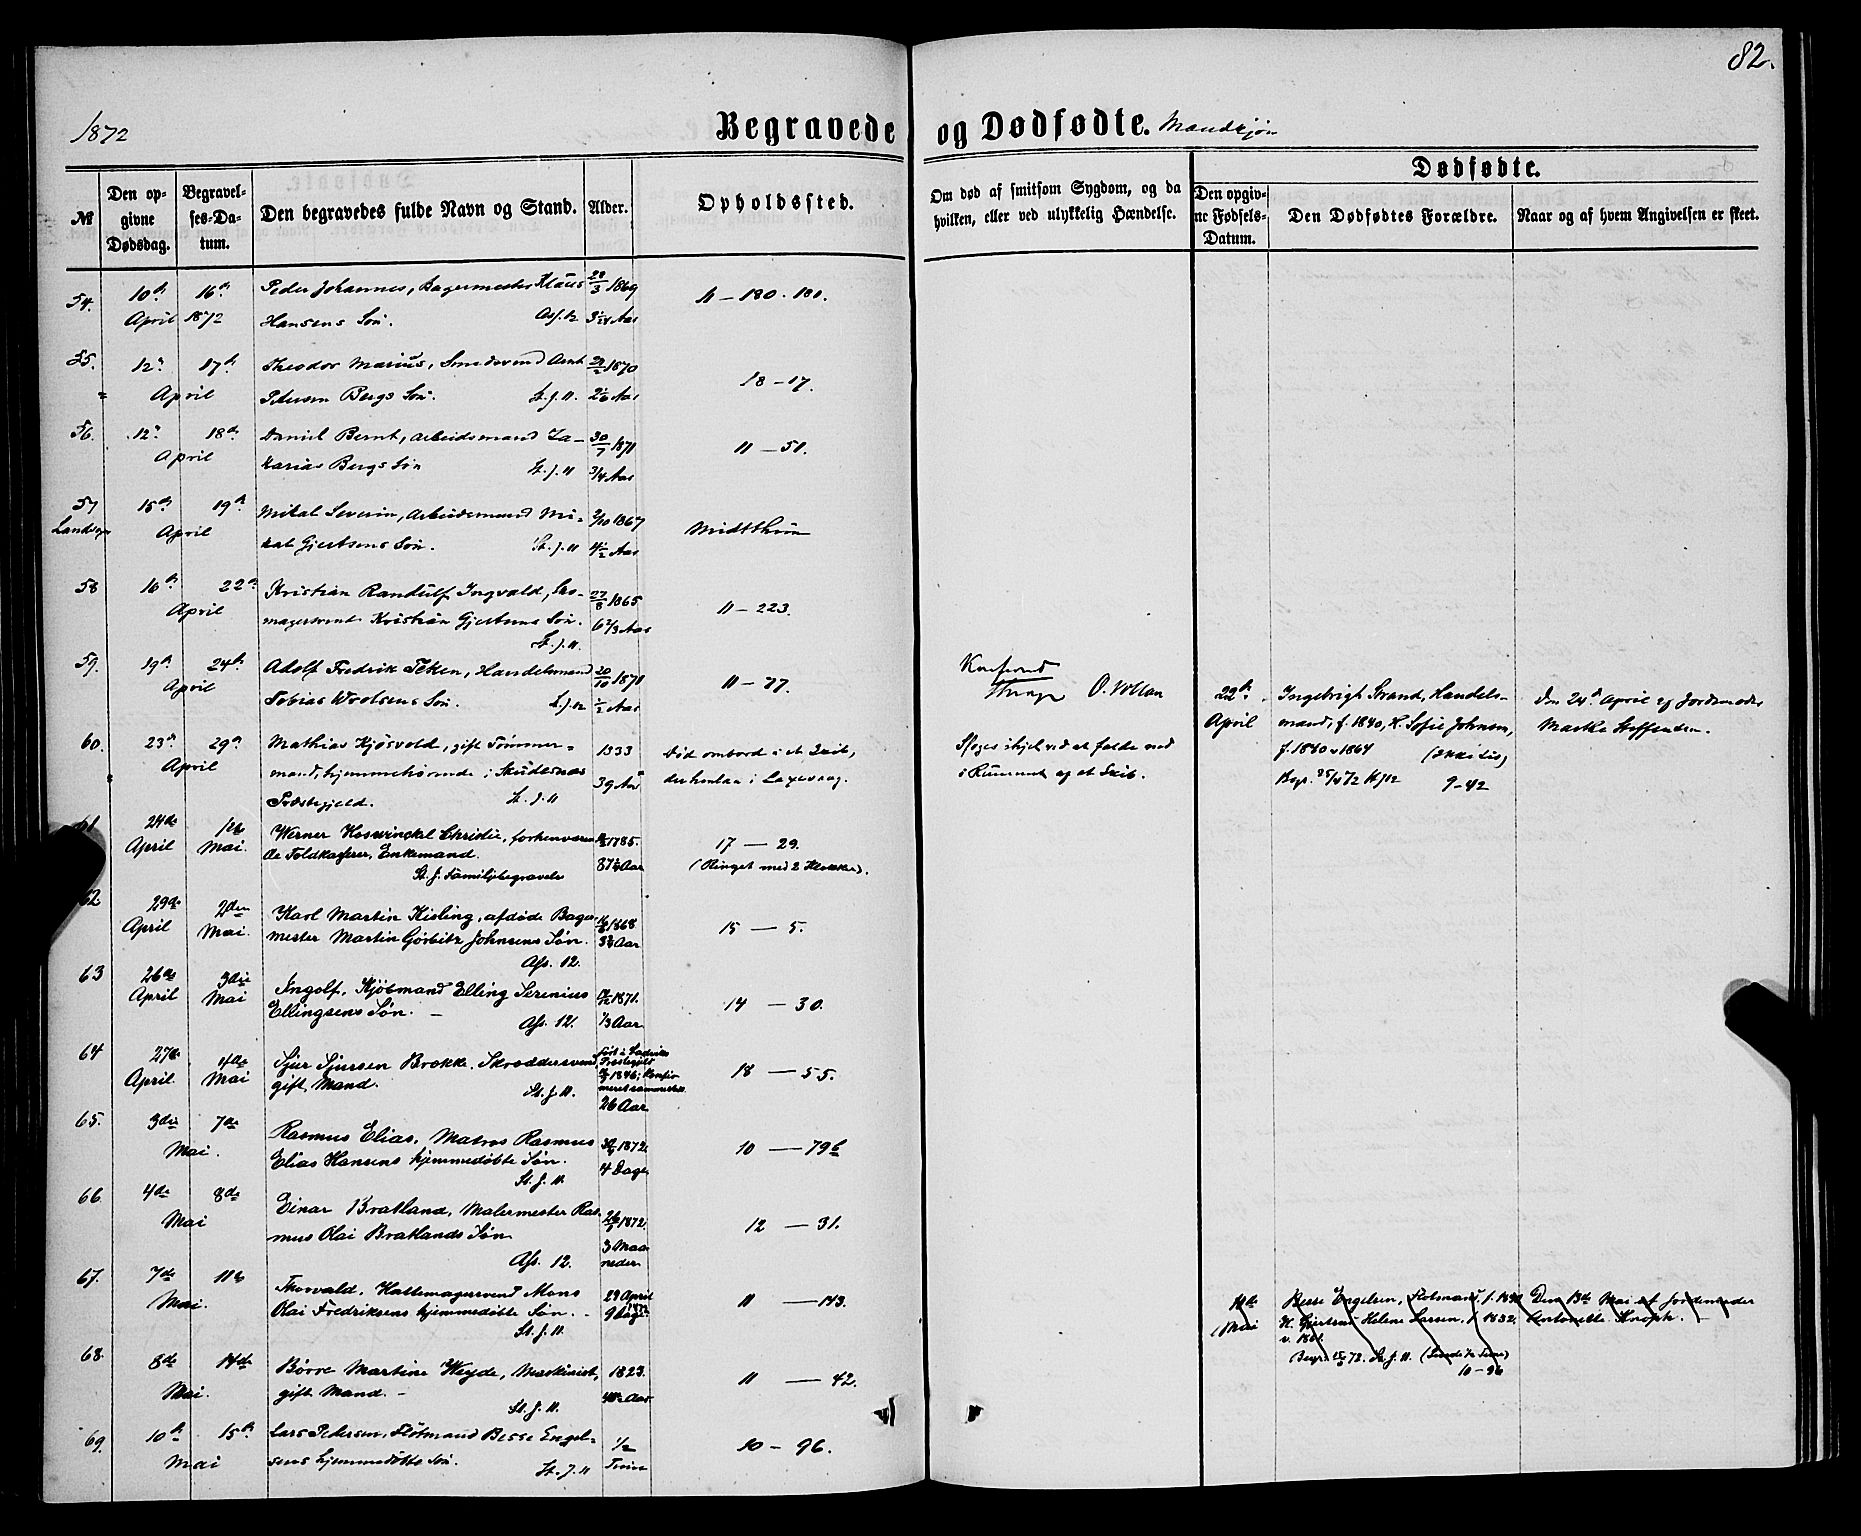 82.
1872
Begravede og Dødfødte. Mandkjøn
№
Den opgivne Dødsdag.
Begravelses-Datum.
Den begravedes fulde Navn og Stand.
Alder.
Opholdssted.
Om død af smitsom Sygdom, og da hvilken, eller ved ulykkelig Hændelse.
Dødfødte.
Den opgivne Fødsels-Datum.
Den Dødfødtes Forældre.
Naar og af hvem Angivelsen er skeet.
54. 10de 16de Peder Johannes, Bagermester Klaus 28/3 1869 11 - 180. 181.
April 1872 Hansens Søn. Ass. 12 Aar
55. 12 17de Theodor Marius, Smedsvend Arnt 1870 18 - 17.
April Petersen Bergs Søn. St. J. 11. Aar
56. 12 18de Daniel Bernt, Arbeidsmand Za- 30/7 1871 11 - 51.
April karias Bergs Søn St. J. 11 3/4 Aar
57 15de 19de Mikal Severin, Arbeidsmand Mi- 2/10 1867
Landsogn April kal Gjertsens Søn. St. J. 11 4 1/2 Aar
58 16de 22de Kristian Randulf Ingvald, Sko- 27/8 1865 11 - 223.
April magersvend Kristian Gjertsens Søn. 6 2/3 Aar
St. J. 11.
59. 19de 24de Adolf Fredrik Teken, Handelsmand 20/10 1871 11 - 77.
April Tobias Wroldsens Søn. St. J. 12 1/2 Aar
22de April Ingebrigt Strand, Handels- Den 24de April af Jordemoder
mand, f. 1840, H. Sofie Johnsen, Marthe Steffensen.
f. 1840 v 1864
Begr. 25/4 72 9-42
60. 23de 29de Mathias Kjøsvold, gift Tømmer- 1833 Død ombord i et Skib,
April mand, hjemmehørende i Skudesnæs 39 Aar der henlaa i Laxevaag.
Præstegjeld. St. J. 11
Sloges ihjel ved at falde ned
i Rummet af et Skib.
61 24de 1ste Werner Hosewinckel Christie, forhenværen 1785. 17 - 29.
April Mai. de Toldkasserer, Enkemand. Aar (Ringet med 2 Klokker).
St. J. Familiebegravelse
62 29de 2den Karl Martin Kisling, afdøde Bager- 1868 15 - 5.
April Mai. mester Martin Görbitz Johnsens Søn. Aar
Ass. 12.
63 26de 3die Ingolf, Kjøbmand Elling Serenius 1871. 14 - 30.
April Mai Ellingsens Søn. - Ass. 12. 1/3 Aar
64 27de 4de Sjur Sjursen Brække, Skræddersvend, 18 - 55.
April Mai gift Mand. St. J. 11. 26 Aar
65. 3die 7de Rasmus Elias, Matros Rasmus 1872 10 - 79b
Mai. Elias Hansens hjemmedøbte Søn. 4 Dage
St. J. 11.
66. 4de 8de Einar Bratland, Malermester Ras- 1872. 12 - 31.
Mai mus Olai Bratlands Søn 3 Maa-
Ass. 12. neder
67. 7de 11te Thorvald, Hattemagersvend Mons 29 April 11 - 143.
Mai. Olai Fredriksens hjemmedøbte Søn. - 9 Dage 1872
St. J. 11.
11te Mai Besse Engelsen, Flotmand, f. 1830 Den 13de Mai af Jordemoder
H. Gjertrud Helene Larsen, f. 1832. Antonette Knoph. -
v. 1861.
Begr. 15/5 72. St. J. 11.
10-96
68. 8de 14de Børre Martins Heyde, Maskinist, 1823. 11 - 42.
Mai. gift Mand. - Aar
St. J. 11.
69. 10de 15de Lars Pedersen, Flötmand Besse Engel- 1/2 10 - 96.
Mai sens hjemmedöbte Søn. St. J. 11 Time